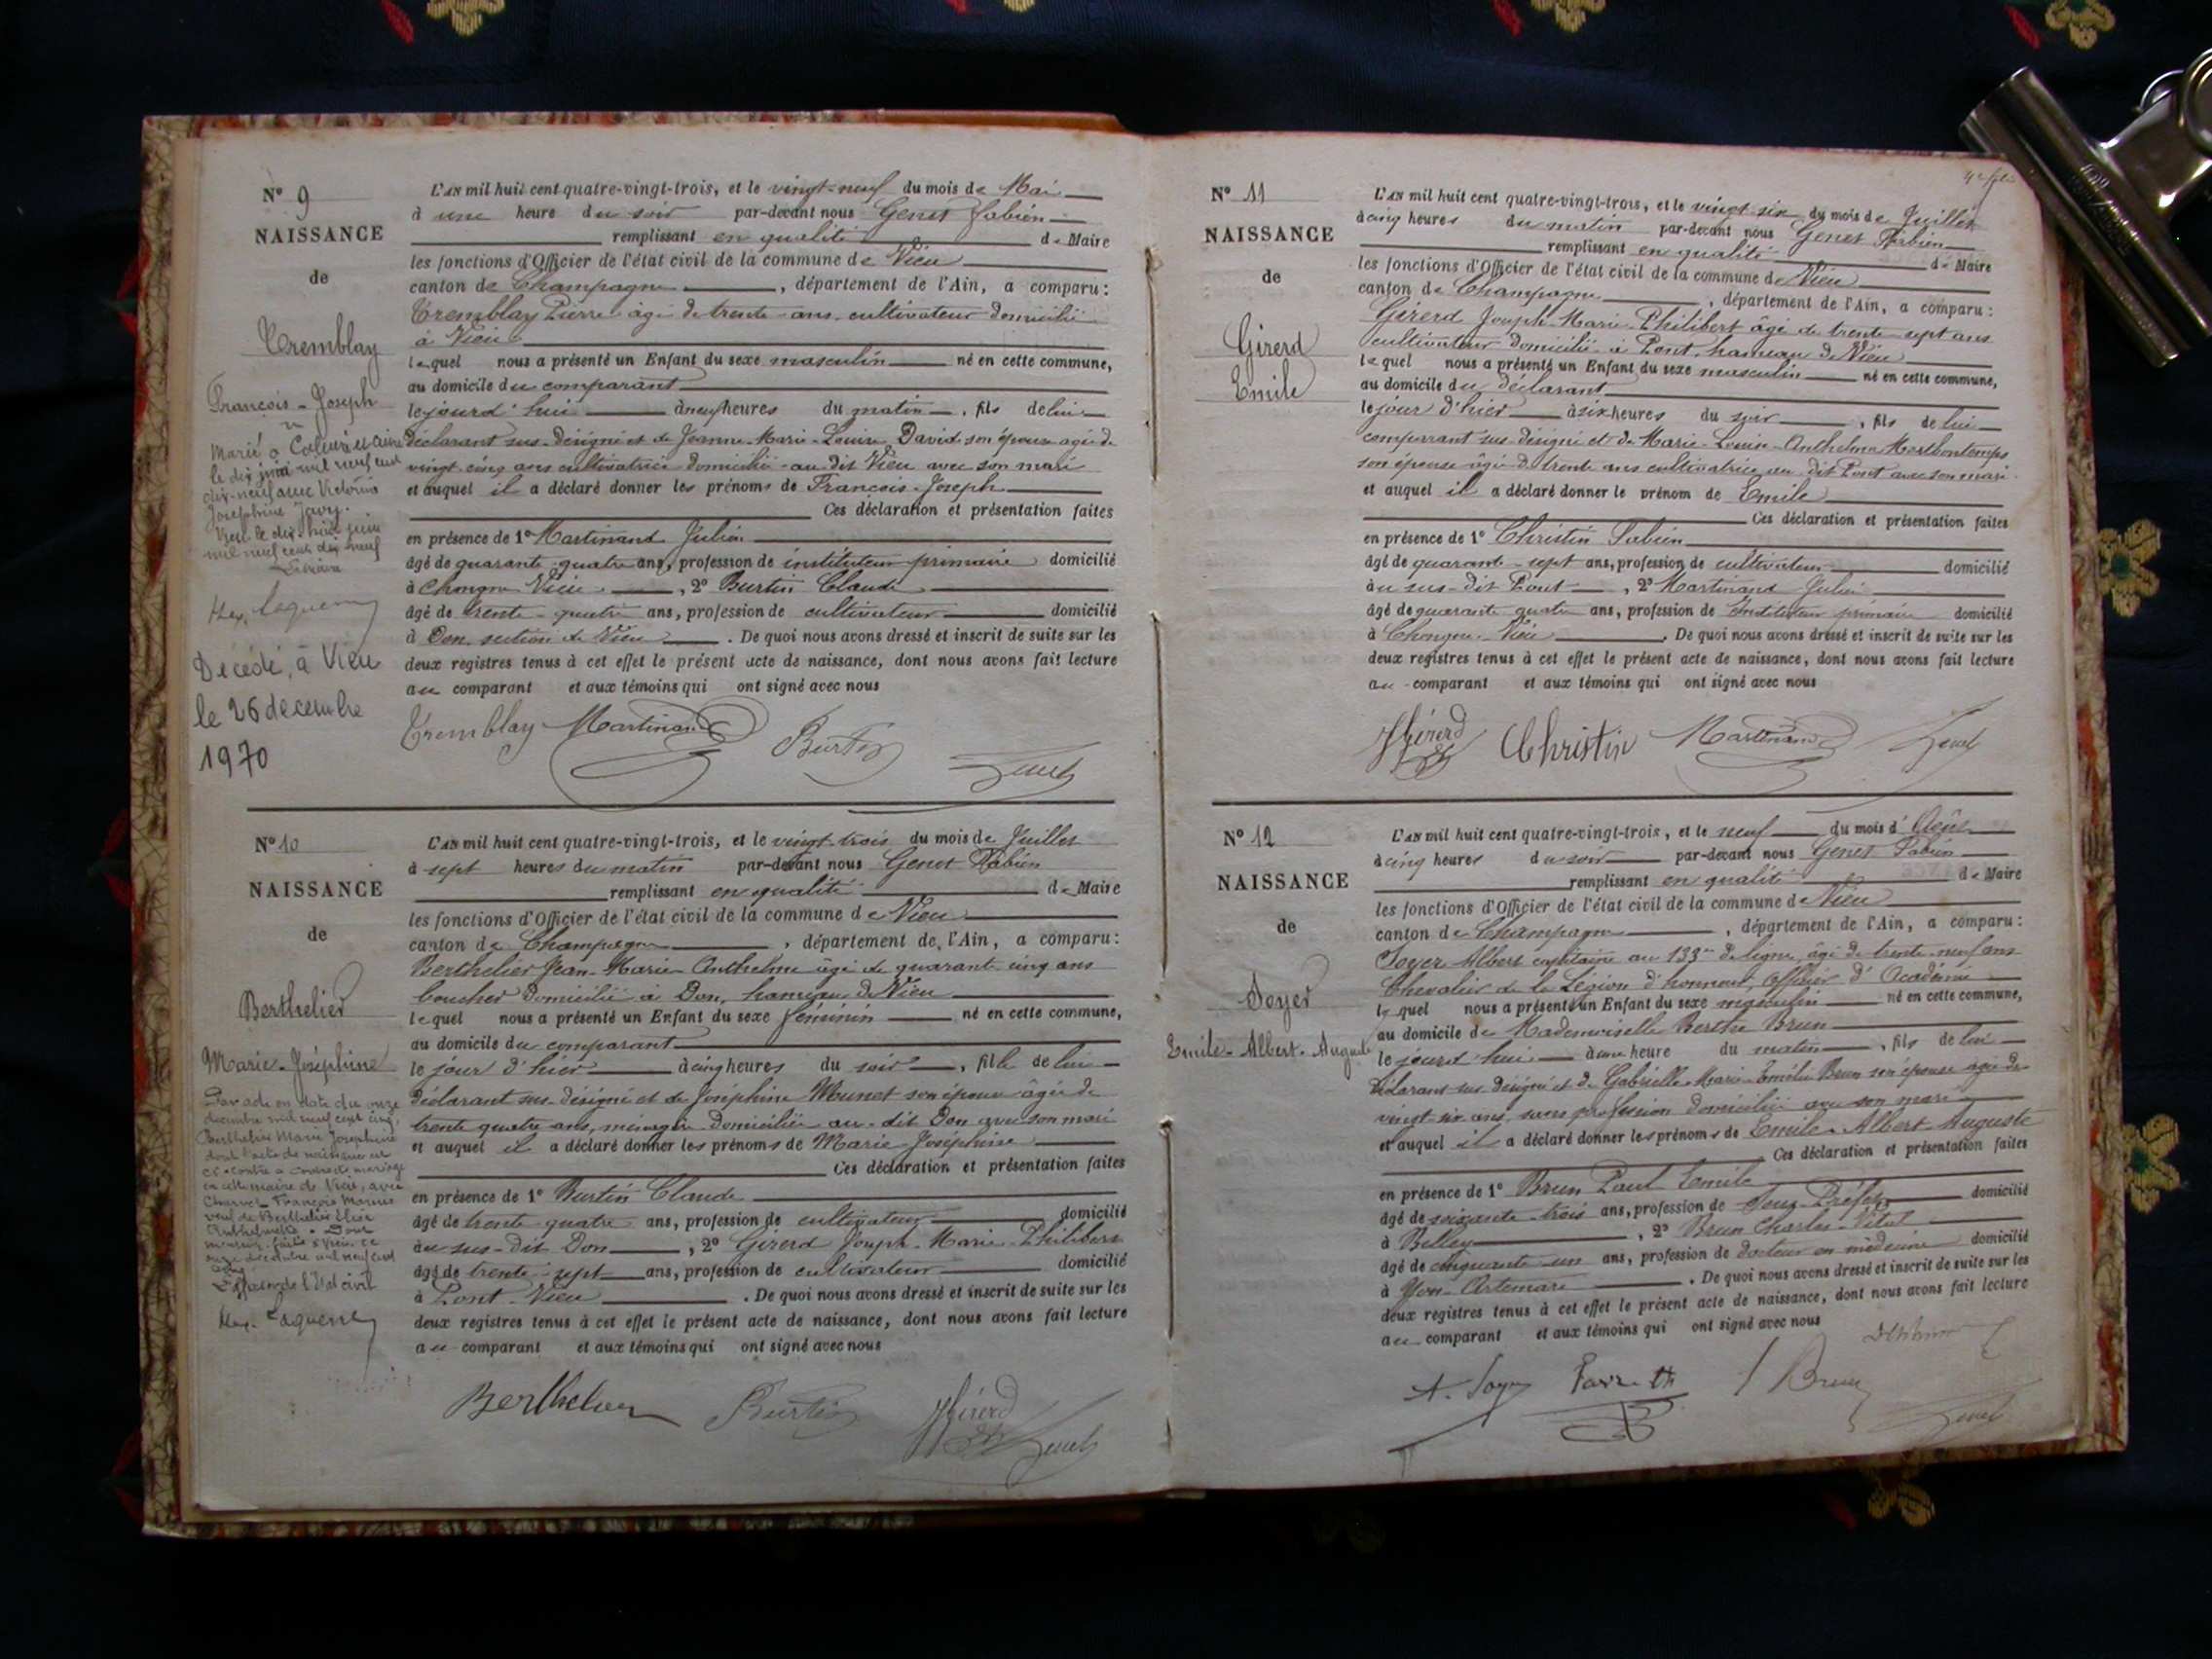 N° 9
NAISSANCE
de
Tremblay
François-Joseph
Marié à
le dix juin mil neuf cent
dix-neuf avec Victorine
Joséphine
Vieu le dix-huit juin
mil neuf cent dix neuf
Décédé, à Vieu
le 26 décembre
1970
L'AN mil huit cent quatre-vingt-trois, et le vingt-neuf du mois de Mai
à une heure du soir par-devant nous Genet Fabien
remplissant en qualité de Maire
les fonctions d'Officier de l'état civil de la commune de Vieu
canton de Champagne, département de l'Ain, a comparu:
Tremblay Pierre âgé de trente ans, cultivateur domicilié
à Vieu
lequel nous a présenté un Enfant du sexe masculin né en cette commune,
au domicile du comparant
le jourd'hui à neuf heures du matin, fils de lui
déclarant sus-désigné et de Jeanne-Marie-Louise David son épouse agée de
vingt-cinq ans cultivatrice domiciliée au dit Vieu avec son mari
et auquel il a déclaré donner les prénoms de François-Joseph
Ces déclaration et présentation faites
en présence de 1° Martinand Julien
âgé de quarante-quatre ans, profession de instituteur primaire domicilié
à Chongne Vieu, 2° Burtin Claude
âgé de trente-quatre ans, profession de cultivateur domicilié
à Don, section de Vieu. De quoi nous avons dressé et inscrit de suite sur les
deux registres tenus à cet effet le présent acte de naissance, dont nous avons fait lecture
au comparant et aux témoins qui ont signé avec nous
Tremblay Martinand Burtin Genet
N° 10
NAISSANCE
de
Berthelier
Marie-Joséphine
Par acte en date du onze
décembre mil neuf cent cinq,
Berthelier Marie Joséphine
dont l'acte de naissance est
ci-contre a contracté mariage
en cette mairie de Vieu, avec
Charvet François Marius
veuf de Berthelier Elise
L'officier de l'Etat civil
L'AN mil huit cent quatre-vingt-trois, et le vingt-trois du mois de Juillet
à sept heures du matin par-devant nous Genet Fabien
remplissant en qualité de Maire
les fonctions d'Officier de l'état civil de la commune de Vieu
canton de Champagne, département de l'Ain, a comparu:
Berthelier Jean-Marie-Anthelme âgé de quarante-cinq ans
boucher domicilié à Don, hameau de Vieu
lequel nous a présenté un Enfant du sexe féminin né en cette commune,
au domicile du comparant
le jour d'hier à cinq heures du soir, fille de lui
déclarant sus-désigné et de Joséphine Munet son épouse âgée de
trente quatre ans, ménagère domiciliée au-dit Don avec son mari
et auquel il a déclaré donner les prénoms de Marie-Joséphine
Ces déclaration et présentation faites
en présence de 1° Burtin Claude
âgé de trente-quatre ans, profession de cultivateur domicilié
au sus-dit Don, 2° Girerd Joseph-Marie-Philibert
âgé de trente-sept ans, profession de cultivateur domicilié
à Pont-Vieu. De quoi nous avons dressé et inscrit de suite sur les
deux registres tenus à cet effet le présent acte de naissance, dont nous avons fait lecture
au comparant et aux témoins qui ont signé avec nous
Berthelier Burtin JGirerd Genet
N° 11
NAISSANCE
de
Girerd
Emile
L'AN mil huit cent quatre-vingt-trois, et le vingt six du mois de Juillet
à cinq heures du matin par-devant nous Genet Fabien
remplissant en qualité de Maire
les fonctions d'Officier de l'état civil de la commune de Vieu
canton de Champagne, département de l'Ain, a comparu:
Girerd Joseph-Marie-Philibert âgé de trente sept ans
cultivateur domicilié à Pont, hameau de Vieu
lequel nous a présenté un Enfant du sexe masculin né en cette commune,
au domicile du déclarant
le jour d'hier à six heures du soir, fils de lui
comparant sus-désigné et de Marie-Louise-Anthelme Montbontemps
son épouse âgée de trente ans cultivatrice au dit Pont avec son mari
et auquel il a déclaré donner le prénom de Emile
Ces déclaration et présentation faites
en présence de 1° Christin Fabien
âgé de quarante-sept ans, profession de cultivateur domicilié
au sus-dit Pont, 2° Martinand Julien
âgé de quarante quatre ans, profession de Instituteur primaire domicilié
à Chongne-Vieu. De quoi nous avons dressé et inscrit de suite sur les
deux registres tenus à cet effet le présent acte de naissance, dont nous avons fait lecture
au comparant et aux témoins qui ont signé avec nous
JGirerd Christin Martinand Genet
N° 12
NAISSANCE
de
Soyer
Emile-Albert-Auguste
L'AN mil huit cent quatre-vingt-trois, et le neuf du mois d'Août
à cinq heures du soir par-devant nous Genet Fabien
remplissant en qualité de Maire
les fonctions d'Officier de l'état civil de la commune de Vieu
canton de Champagne, département de l'Ain, a comparu:
Soyer Albert capitaine au 133me de ligne, âgé de trente-neuf ans
Chevalier de la Légion d'honneur, Officier d'Académie
lequel nous a présenté un Enfant du sexe masculin né en cette commune,
au domicile de Mademoiselle Berthe Brun
le jourd'hui à une heure du matin, fils de lui
déclarant sus-désigné et de Gabrielle-Marie-Emélie Brun son épouse agée de
vingt six ans, sans profession domiciliée avec son mari
et auquel il a déclaré donner les prénoms de Emile-Albert Auguste
Ces déclaration et présentation faites
en présence de 1° Brun Paul Emile
âgé de soixante-trois ans, profession de Sous-Préfet domicilié
à Belley, 2° Brun Charles-Vital
âgé de cinquante-un ans, profession de docteur en médecine domicilié
à Yon-Artemare. De quoi nous avons dressé et inscrit de suite sur les
deux registres tenus à cet effet le présent acte de naissance, dont nous avons fait lecture
au comparant et aux témoins qui ont signé avec nous
A. Soyer Brun Genet